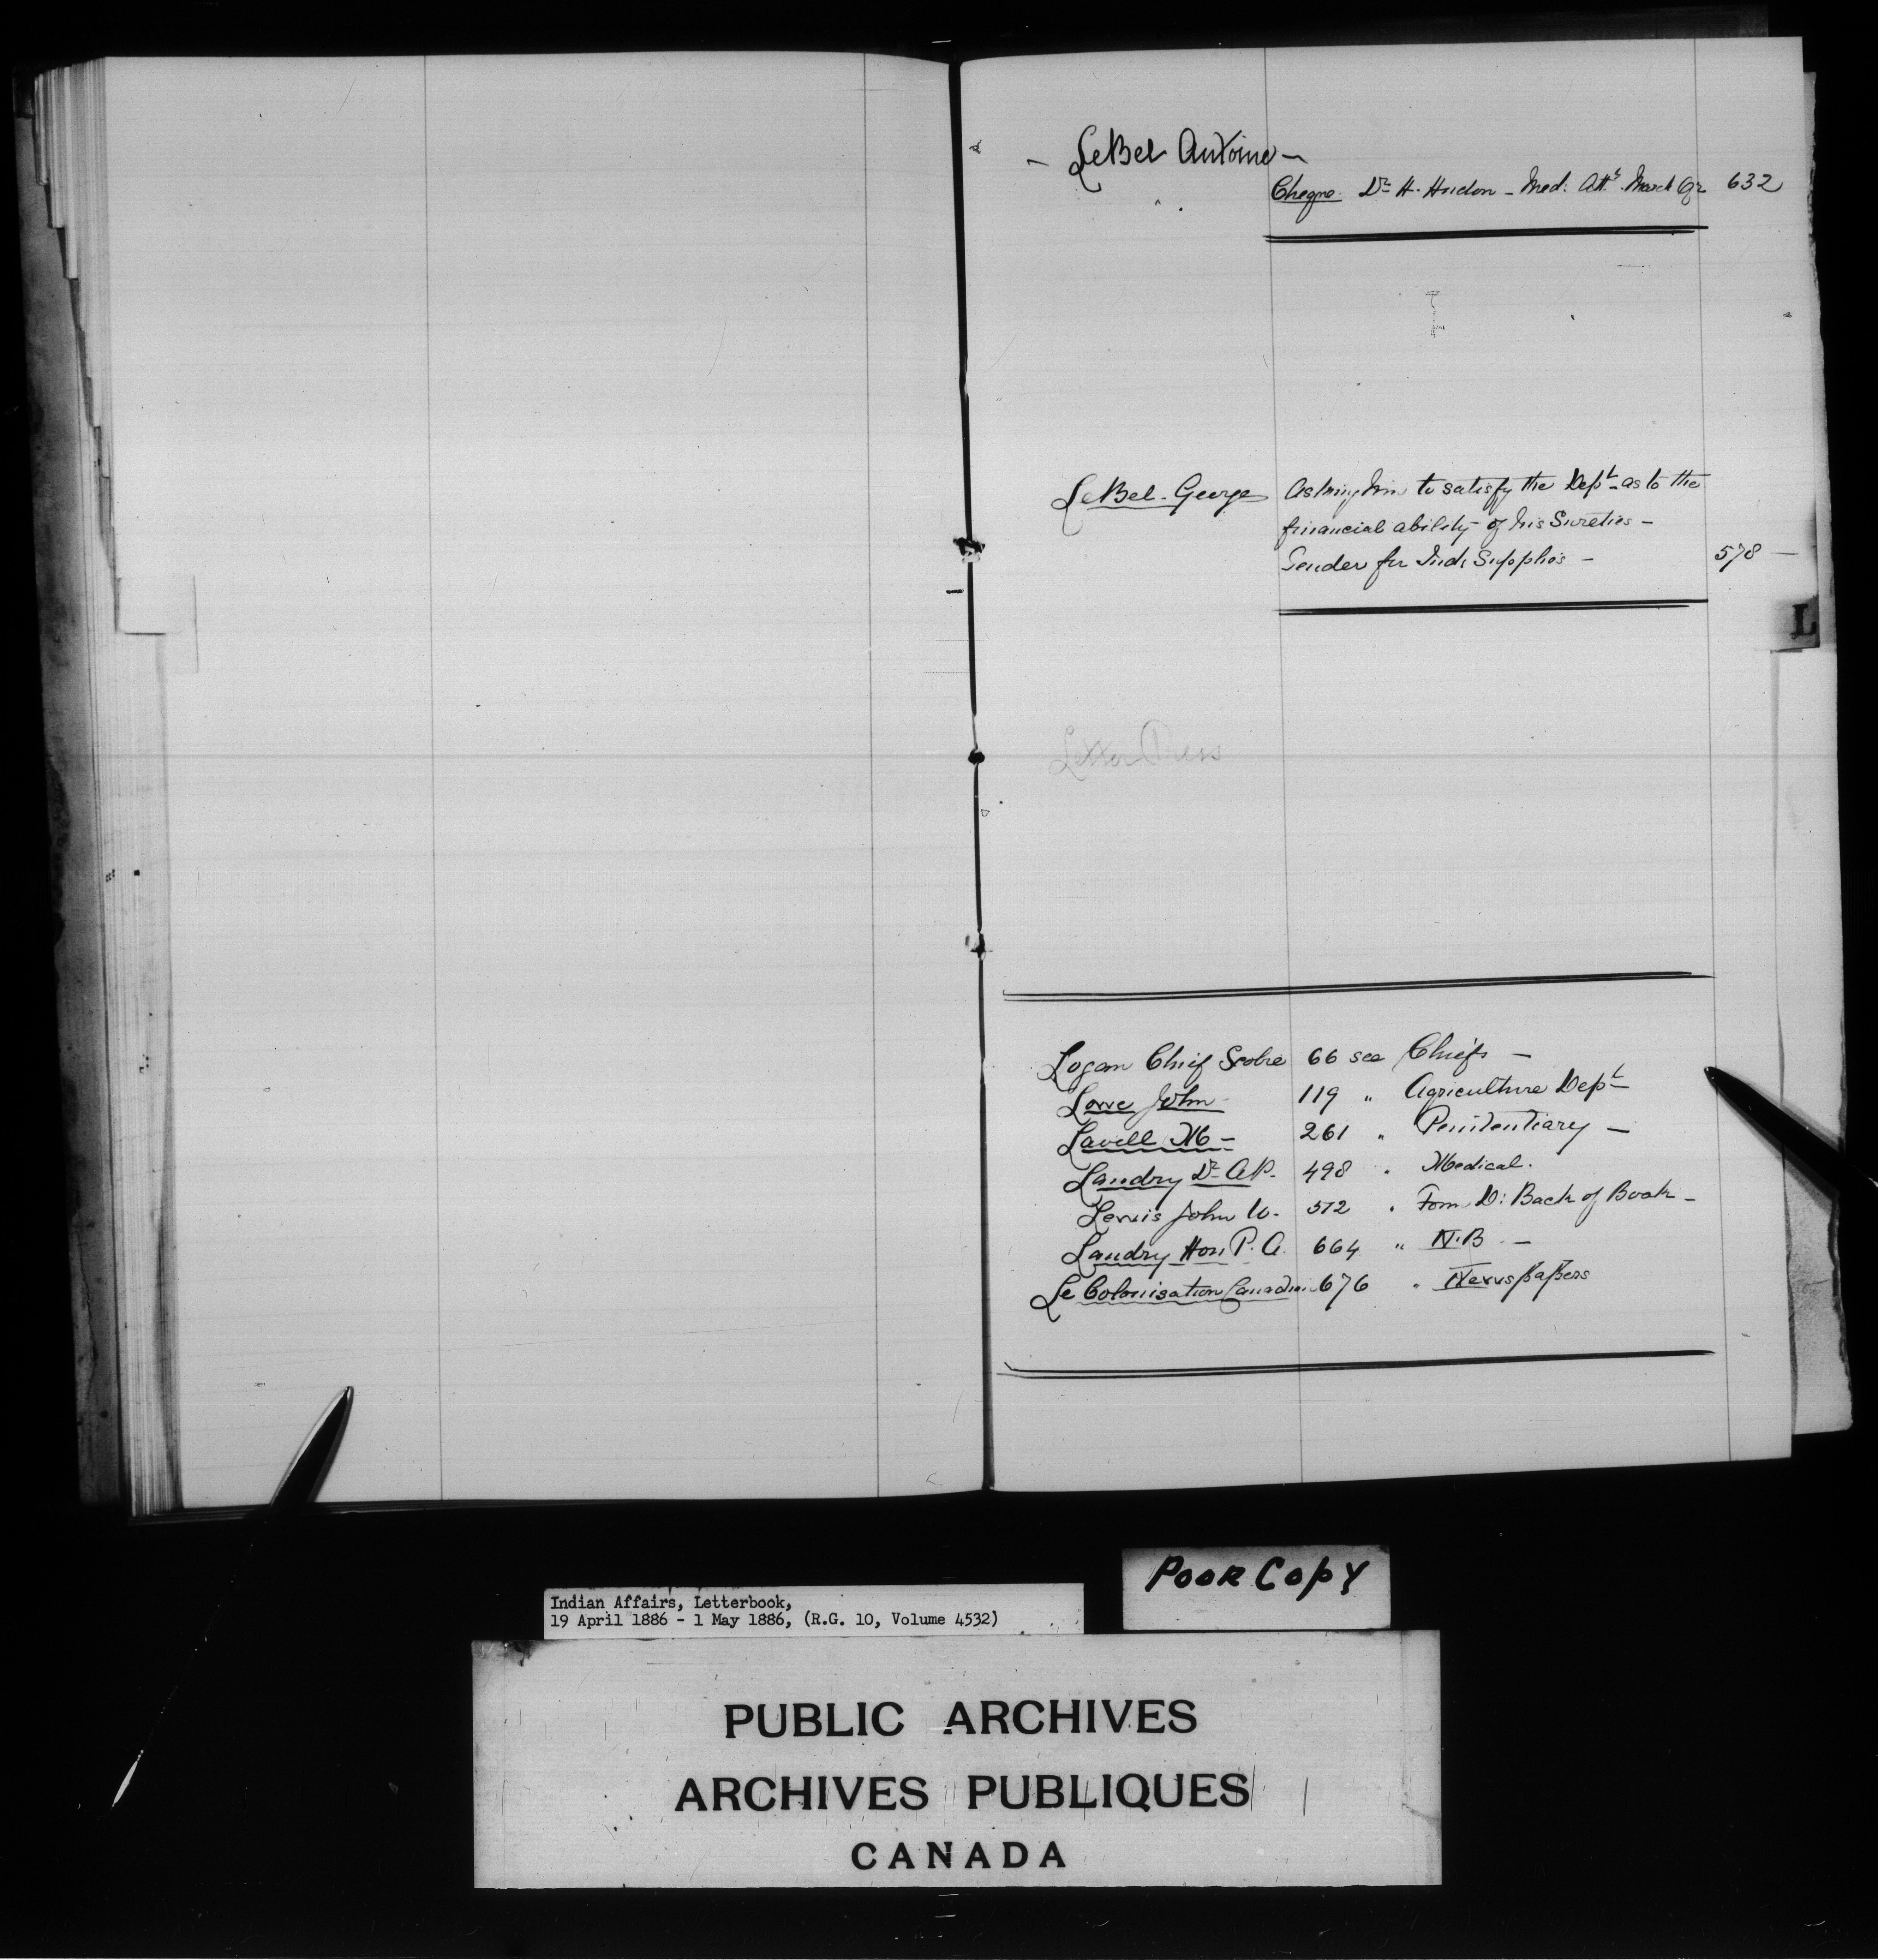 LeBel Antoine —
Cheque. Dr H. Hudon — Med: Att. March Qr 632
LeBel. George Asking him to satisfy the Dept. as to the
financial ability of his Sureties —
Tender for Ind: Supplies — 578 —
L
Letter Press
Logan Chief Scobie 66 see Chiefs —
Lowe John 119 " Agriculture Dept
Lavell M — 261 " Penitentiary —
Landry Dr A.P. 498 " Medical.
Lewis John W. 572 " Form D: Back of Book —
Landry Hon P. A. 664 " N.B —
Le Colonisation Canadien 676 " Newspapers
POOR COPY
Indian Affairs, Letterbook,
19 April 1886 - 1 May 1886, (R.G. 10, Volume 4532)
PUBLIC ARCHIVES
ARCHIVES PUBLIQUES
CANADA